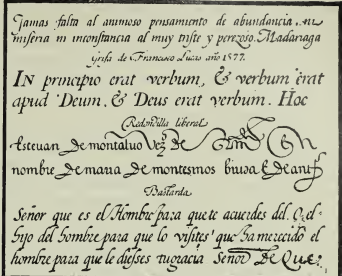 Jamas falta al animoso pensamiento de abundancia, ni
miseria ni inconstancia al muy triste y perezoso. Madariaga
Grifa de Francisco Lucas año 1577.
IN principio erat verbum, & verbum erat
apud Deum. & Deus erat verbum. Hoc
Redondilla liberal
Esteuan De montaluo Vezº De
nombre de maria de montesinos biuda
Bastarda
Señor que es el Hombre para que te acuerdes del. O, el
hijo del hombre para que lo visites que ha merecido el
hombre para que le diesses tu gracia Señor De Que